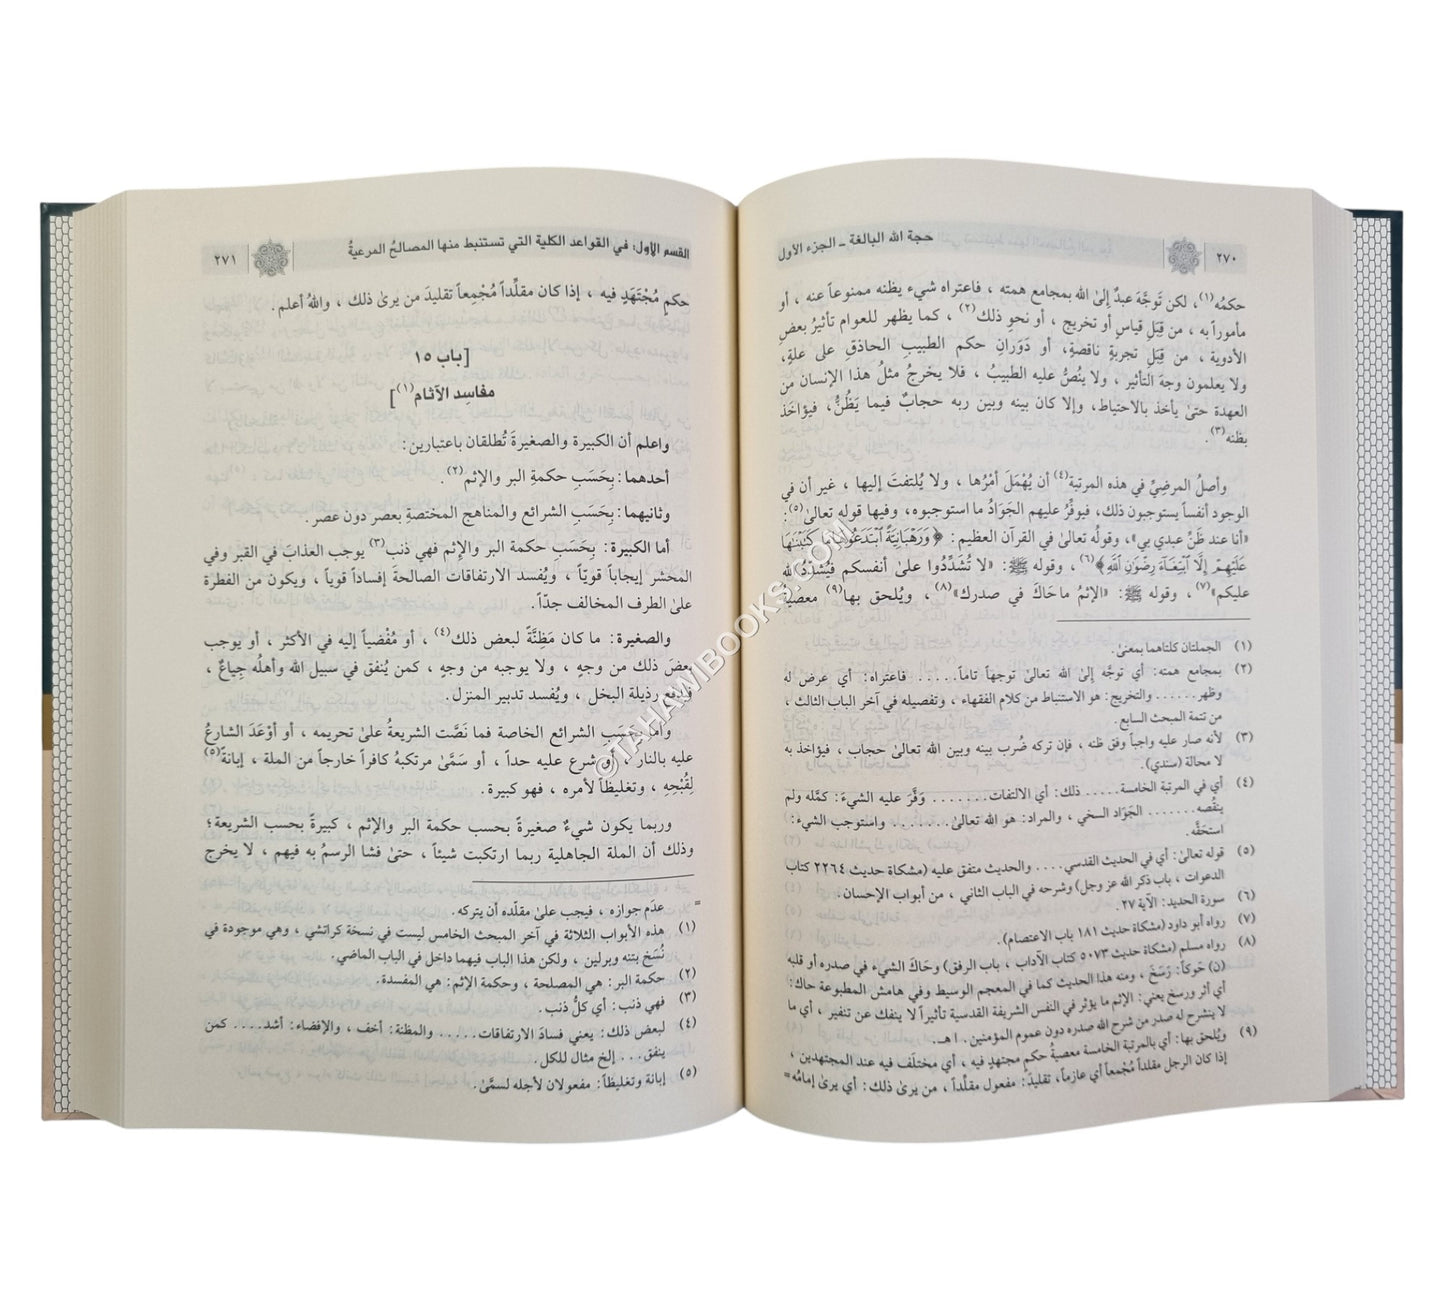 ٢٧٠
حجة الله البالغة ـ الجزء الأول
حكمُه(١)، لكن تَوجَّهَ عبدٌ إلىٰ الله بمجامع همته ، فاعتراه شيء يظنه ممنوعاً عنه ، أو
مأموراً به ، من قِبَلِ قياسٍ أو تخريج ، أو نحوِ ذلك(٢) ، كما يظهر للعوام تأثيرُ بعضِ
الأدوية ، من قِبَلِ تجربةٍ ناقصةٍ، أو دَوَرانِ حكم الطبيبِ الحاذقِ على علةٍ،
ولا يعلمون وجهَ التأثير ، ولا ينُصُّ عليه الطبيبُ ، فلا يخرجُ مثلُ هذا الإنسان من
العهدة حتىٰ يأخذ بالاحتياط، وإلا كان بينه وبين ربه حجابٌ فيما يَظُنُّ، فيؤاخَذ
بظنه(٣).
وأصلُ المرضيِّ في هذه المرتبة(٤) أن يُهْمَلَ أمْرُها ، ولا يُلتفتَ إليها ، غير أن في
الوجود أنفساً يستوجبون ذلك، فيوفِّرُ عليهم الجَوَادُ ما استوجبوه، وفيها قوله تعالىٰ(٥):
«أنا عند ظَنِّ عبدي بي» ، وقولُه تعالىٰ في القرآن العظيم: ﴿وَرَهْبَانِيَّةً ٱبْتَدَعُوهَا مَا كَتَبْنَٰهَا
عَلَيْهِمْ إِلَّا ٱبْتِغَآءَ رِضْوَٰنِ ٱللَّهِ﴾(٦) ، وقوله ﷺ: «لا تُشَدِّدُوا علىٰ أنفسكم فيُشدِّدُ لله
عليكم»(٧) ، وقوله ﷺ: «الإثمُ ماحَاكَ في صدرك»(٨) ، ويُلحق بها(٩) معصيةُ
(١) الجملتان كلتاهما بمعنىً.
(٢) بمجامع همته: أي توجَّه إلىٰ الله تعالىٰ توجهاً تاماً..... فاعتراه: أي عرض له
وظهر...... والتخريج: هو الاستنباط من كلام الفقهاء ، وتفصيله في آخر الباب الثالث ،
من تتمة المبحث السابع.
(٣) لأنه صار عليه واجباً وفق ظنه ، فإن تركه ضُرب بينه وبين الله تعالىٰ حجاب ، فيؤاخذ به
لا محالة (سندي).
(٤) أي في المرتبة الخامسة..... ذلك: أي الالتفات....... وَفَّرَ عليه الشيءَ: كمَّله ولم
ينقُصه........ الجَوَاد السخي ، والمراد: هو الله تعالىٰ....... واستوجب الشيءَ:
استحَقَّه.
(٥) قوله تعالىٰ: أي في الحديث القدسي.... والحديث متفق عليه (مشكاة حديث ٢٢٦٤ كتاب
الدعوات ، باب ذكر الله عز وجل) وشرحه في الباب الثاني ، من أبواب الإحسان.
(٦) سورة الحديد: الآية ٢٧.
(٧) رواه أبو داود (مشكاة حديث ١٨١ باب الاعتصام).
(٨) رواه مسلم (مشكاة حديث ٥٠٧٣ كتاب الآداب ، باب الرفق) وحَاكَ الشيءُ في صدره أو قلبه
(ن) حَوكاً: رَسَخَ ، ومنه هذا الحديث كما في المعجم الوسيط وفي هامش المطبوعة حاك:
أي أثر ورسخ يعني: الإثم ما يؤثر في النفس الشريفة القدسية تأثيراً لا ينفك عن تنفير ، أي ما
لا ينشرح له صدر من شرح الله صدره دون عموم المؤمنين . ا هـ.
(٩) ويُلحق بها: أي بالمرتبة الخامسة معصيةُ حكمٍ مجتهدٍ فيه ، أي مختلَف فيه عند المجتهدين ،
إذا كان الرجل مقلداً مُجْمعاً أي عازماً، تقليدَ: مفعول مقلِّداً ، من يرىٰ ذلك: أي يرىٰ إمامُه =
القسم الأول: في القواعد الكلية التي تستنبط منها المصالحُ المرعيةُ
٢٧١
حكمٍ مُجْتَهَدٍ فيه ، إذا كان مقلِّداً مُجْمِعاً تقليدَ من يرىٰ ذلك ، واللهُ أعلم .
[باب ١٥
مفاسد الآثام(١)]
واعلم أن الكبيرة والصغيرةَ تُطلقان باعتبارين:
أحدهما: بِحَسَبِ حكمةِ البر والإثم(٢).
وثانيهما: بِحَسَبِ الشرائع والمناهج المختصةِ بعصر دون عصر.
أما الكبيرة: بِحَسَبِ حكمة البر والإثم فهي ذنب(٣) يوجب العذابَ في القبر وفي
المحشر إيجاباً قويّاً ، ويُفسد الارتفاقات الصالحةَ إفساداً قوياً ، ويكون من الفطرة
علىٰ الطرف المخالف جدّاً.
والصغيرة: ما كان مَظِنَّةً لبعض ذلك(٤) ، أو مُفْضياً إليه في الأكثر ، أو يوجب
بعضَ ذلك من وجهٍ ، ولا يوجبه من وجهٍ ، كمن يُنفق في سبيل الله وأهلُه جِياعٌ ،
فيدفع رذيلة البخل ، ويُفسد تدبير المنزل .
وأما بحَسَب الشرائع الخاصة فما نَصَّت الشريعةُ علىٰ تحريمه ، أو أوْعَدَ الشارعُ
عليه بالنار ، أو شرع عليه حداً ، أو سَمَّىٰ مرتكبهُ كافراً خارجاً من الملة ، إبانةً(٥)
لِقُبْحِهِ ، وتغليظاً لأمره ، فهو كبيرة.
وربما يكون شيءٌ صغيرةً بحسب حكمة البر والإثم ، كبيرةً بحسب الشريعة؛
وذلك أن الملة الجاهلية ربما ارتكبت شيئاً ، حتىٰ فشا الرسمُ به فيهم ، لا يخرج
= عدَم جوازه ، فيجب علىٰ مقلّده أن يتركه.
(١) هذه الأبواب الثلاثة في آخر المبحث الخامس ليست في نسخة كراتشي ، وهي موجودة في
نُسَخ بتنه وبرلين ، ولكن هذا الباب فيهما داخل في الباب الماضي.
(٢) حكمة البر: هي المصلحة ، وحكمة الإثم: هي المفسدة.
(٣) فهي ذنب: أي كلُّ ذنب.
(٤) لبعض ذلك: يعني فسادَ الارتفاقات..... والمظنة: أخف ، والإفضاء: أشد.... كمن
ينفق... إلخ مثال للكل.
(٥) إبانة وتغليظاً: مفعولان لأجله لسمَّىٰ.
©TAHAWIBOOKS.COM